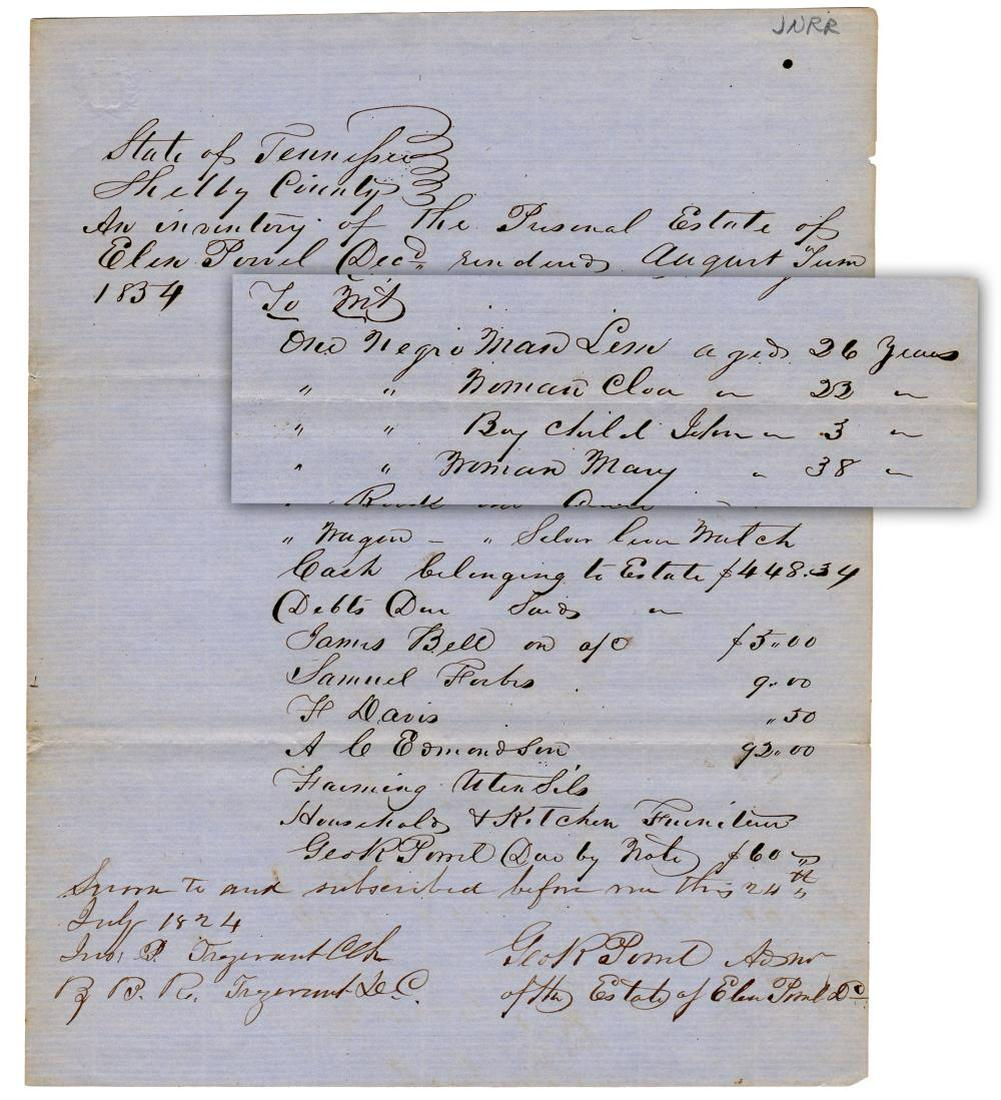 JNRR
State of Tennessee
Shelby County
An inventory of the Personal Estate of
Elen Powel Decd. rendered August Term
1854
To Wit
One Negro Man Lem aged 26 Years
" " Woman Cloa " 22 "
" " Boy Child John " 3 "
" " Woman Mary " 38 "
" Wagon – " Silver Watch
Cash belonging to Estate $448.34
Debts Due Said "
James Bell on a/c $5.00
Samuel Forbs 9.00
F Davis .50
A C Edmondson 92.00
Farming Utensils
Household & Kitchen Furniture
Geo K Powel Due by Note $60
Sworn to and subscribed before me this 24th
July 1854
Jno. P. Trezevant Clk
By B. R. Trezevant D.C.
Geo K Powel Admr
of the Estate of Elen Powel Dcd